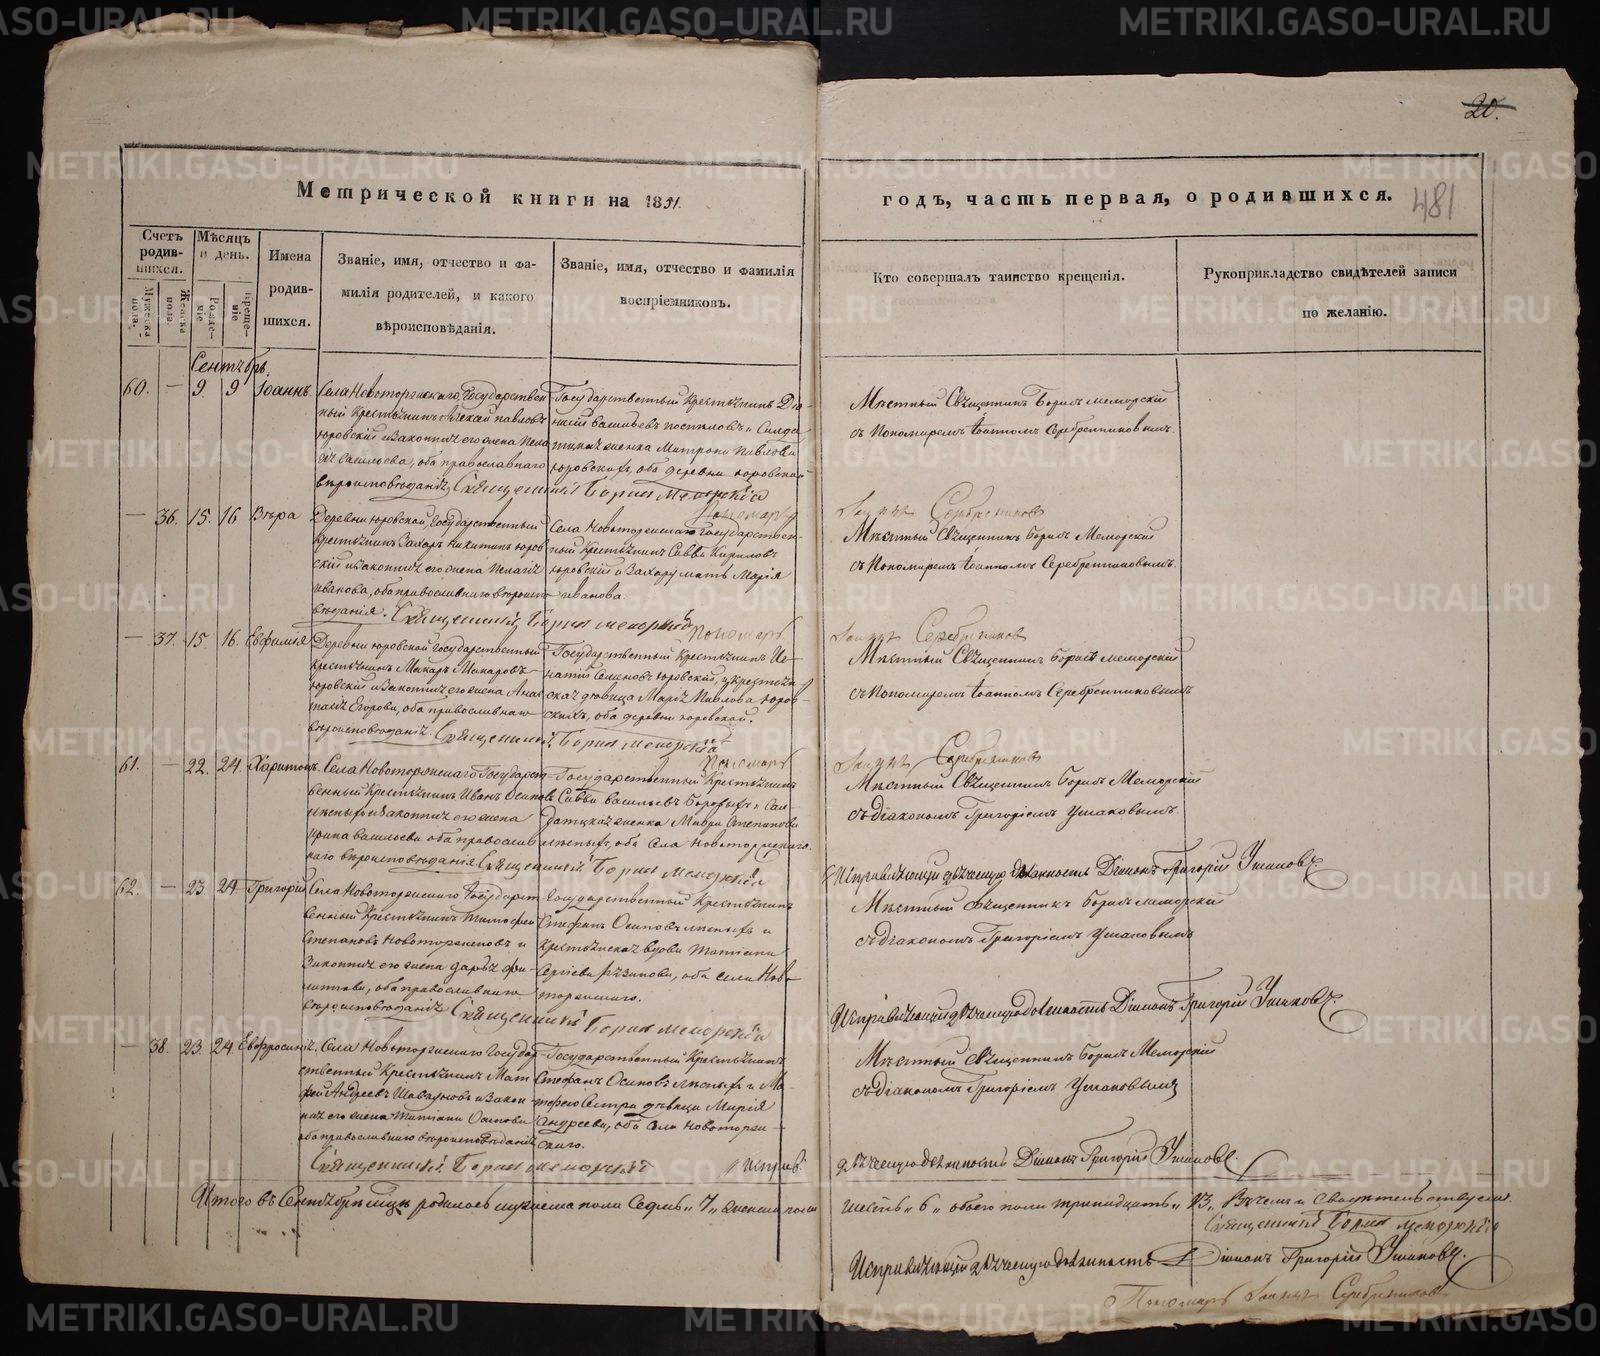 20.
Метрической книги на 1851.
годъ, часть первая, о родившихся. 481
Счетъ родив-шихся.
Мѣсяцъ и день.
Имена родив-шихся.
Званіе, имя, отчество и фа-
милія родителей, и какого
вѣроисповѣданія.
Званіе, имя, отчество и фамилія
воспріемниковъ.
Кто совершалъ таинство крещенія.
Рукоприкладство свидѣтелей записи
по желанію.
Мужеска пола.
Женска пола
Рожде-ніе
Креще-ніе
Сентябрь.
60. — 9 9 Іоаннъ.
Села Новоторжскаго, Государствен
ный Крестьянинъ Алексѣй Павловъ
Юровскій и Законная его жена Пела
гія Васильева, оба православнаго
вѣроисповѣданія. Священникъ Борисъ Меморскій
Государственный Крестьянинъ
Васильевъ Поспѣловъ и Солда
жена Матрона Павлова
Юровскихъ, оба деревни Юровской
Пономарь
Мѣстный Священникъ Борисъ Меморскій
съ Пономаремъ Іоанномъ Серебренниковымъ.
Серебренниковъ
— 36. 15. 16 Вѣра
Деревни Юровской, Государственный
Крестьянинъ Захаръ Никитинъ Юров
скій и законная его жена Пелагія
Иванова, оба православнаго вѣроиспо
вѣданія. Священникъ Борисъ Меморскій
Села Новоторжскаго Государствен
ный Крестьянинъ Савва Кириловъ
Юровскій и Захара мать Марія
Иванова.
Пономарь
Мѣстный Священникъ Борисъ Меморскій
съ Пономаремъ Іоанномъ Серебренниковымъ.
Серебренниковъ
— 37. 15 16. Евфимія
Деревни Юровской Государственный
Крестьянинъ Макаръ Макаровъ
Юровскій и Законная его жена Анас
Егорова, оба православнаго
вѣроисповѣданія. Священникъ Борисъ Меморскій
Государственный Крестьянинъ Иг-
натій Семеновъ Юровскій, и крестьян
ская дѣвица Марія Павлова Юров-
скихъ, оба деревни Юровской.
Пономарь
Мѣстный Священникъ Борисъ Меморскій
съ Пономаремъ Іоанномъ Серебренниковымъ
Серебренниковъ
61. — 22. 24. Харитонъ.
Села Новоторжскаго Государст-
венный Крестьянинъ Иванъ Осиповъ
и Законная его жена
Ирина Васильева оба православ
наго вѣроисповѣданія Священникъ Борисъ Меморскій
Государственный Крестьянинъ
Савва Васильевъ и Сол
датская женка Мавра Степанова
оба Села Новоторжскаго.
Мѣстный Священникъ Борисъ Меморскій
съ Діакономъ Григоріемъ Ушаковымъ.
Исправляющій дьячкую должность Діаконъ Григорій Ушаковъ
62. — 23. 24 Григорій
Села Новоторжскаго Государст
венный Крестьянинъ Тимофей
Степановъ Новоторженовъ и
Законная его жена Дарья Фи-
липпова, оба православнаго
вѣроисповѣданія Священникъ Борисъ Меморскій
Государственный Крестьянинъ
Стефанъ Осиповъ и
Крестьянская вдова Татіана
Сергіева оба села Ново
торжскаго.
Мѣстный Священникъ Борисъ Меморскій
съ Діакономъ Григоріемъ Ушаковымъ
Исправляющій дьячкую должность Діаконъ Григорій Ушаковъ
— 38. 23. 24. Евфросинія.
Села Новоторжскаго Государ-
ственный Крестьянинъ Мат
фей Андреевъ и Закон-
ная его жена Татіана Осипова
оба православнаго вѣроисповѣданія
Священникъ Борисъ Меморскій
Государственный Крестьянинъ
Стефанъ Осиповъ и Ма-
тфею Сестра дѣвица Марія
Андреева, оба села Новоторж-
скаго.
Исправ.
Мѣстный Священникъ Борисъ Меморскій
съ Діакономъ Григоріемъ Ушаковымъ
дьячкую должность Діаконъ Григорій Ушаковъ.
Итого въ Сентябрѣ мцѣ родилось мужеска пола Седмь „7„ женска пола
шесть „6„ обоего пола тринадцать „13„ Въ чемъ и свидѣтельствуемъ
Священникъ Борисъ Меморскій
Исправляющій дьячкую должность Діаконъ Григорій Ушаковъ.
Пономарь Серебренниковъ
METRIKI.GASO-URAL.RU